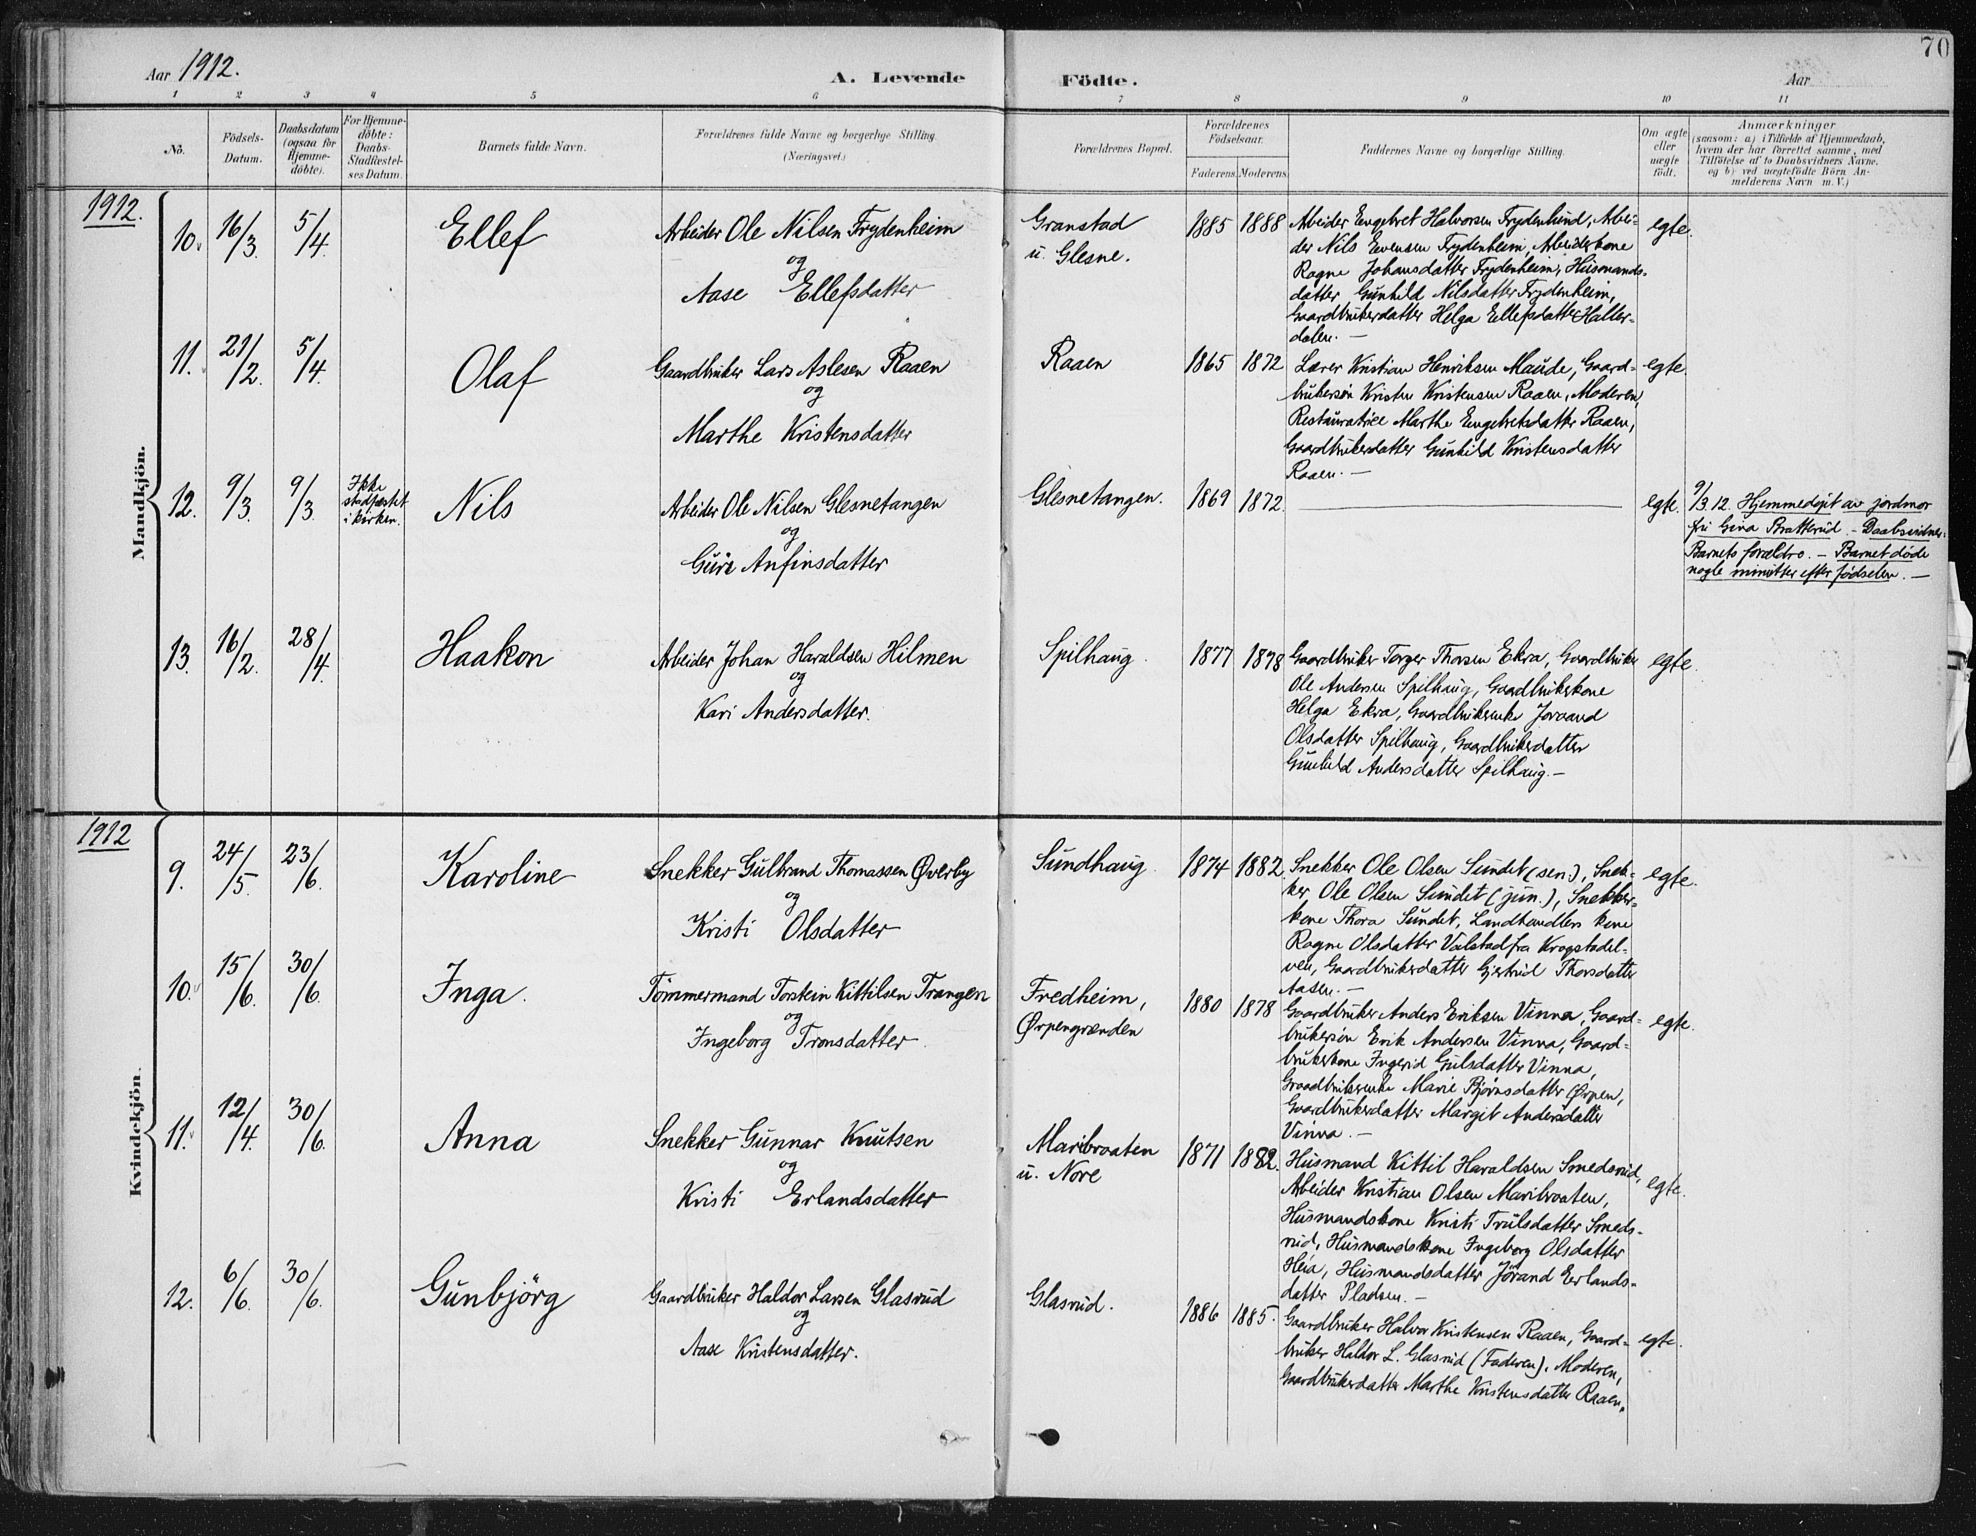 70
Aar 1912.
A. Levende
Födte.
Aar
1 2 3 4 5 6 7 8 9 10 11
No.
Födsels-
Datum.
Daabsdatum
(ogsaa for
Hjemme-
döbte).
For Hjemme-
döbte:
Daabs-
Stadfæstel-
ses Datum.
Barnets fulde Navn.
Forældrenes fulde Navne og borgerlige Stilling.
(Næringsvei.)
Forældrenes Bopæl.
Forældrenes
Födselsaar.
Faderens. Moderens.
Faddernes Navne og borgerlige Stilling.
Om ægte
eller
uægte
födt.
Anmærkninger
(saasom: a) i Tilfælde af Hjemmedaab,
hvem der har forrettet samme, med
Tilföielse af to Daabsvidners Navne,
og b) ved uægtefödte Börn An-
melderens Navn m. V.)
Mandkjön.
1912.
10. 16/3 5/4 Ellef
Arbeider Ole Nilsen Frydenheim
og
Aase Ellefsdatter
Granstad
u. Glesne.
1885 1888
Arbeider Engebret Halvorsen Frydenlund, Arbei-
der Nils Evensen Frydenheim, Arbeiderkone
Ragne Johansdatter Frydenheim, Husmands-
datter Gunhild Nilsdatter Frydenheim,
Gaardbrukerdatter Helga Ellefsdatter Haller-
dalen. —
egte.
11. 21/2. 5/4. Olaf
Gaardbruker Lars Aslesen Raaen
og
Marthe Kristensdatter
Raaen
1865 1872
Lærer Kristian Henriksen Maude, Gaard-
brukersøn Kristen Kristensen Raaen, Moderen,
Restauratrice Marthe Engebretsdatter Raaen,
Gaardbrukerdatter Gunhild Kristensdatter
Raaen. —
egte.
12. 9/3. 9/3.
Ikke
stadfæstet
i kirken.
Nils
Arbeider Ole Nilsen Glesnetangen
og
Guri Anfinsdatter
Glesnetangen.
1869 1872.
egte.
9/3.12. Hjemmedøpt av jordmor
fru Gina Bratterud — Daabsvidner:
Barnets forældre. — Barnet døde
nogle minutter efter fødselen. —
13. 16/2. 28/4. Haakon
Arbeider Johan Haraldsen Hilmen
og
Kari Andersdatter.
Spilhaug.
1877 1878
Gaardbruker Torger Thorsen Ekra, Gaardbruker
Ole Andersen Spilhaug, Gaardbrukerkone
Helga Ekra, Gaardbrukerenke Joraand
Olsdatter Spilhaug, Gaardbrukerdatter
Gunhild Andersdatter Spilhaug. —
egte.
Kvindekjön.
1912
9. 24/5. 23/6. Karoline
Snekker Gulbrand Thomassen Øverby
og
Kristi Olsdatter
Sundhaug
1874 1882.
Snekker Ole Olsen Sundet (sen.), Snek-
ker Ole Olsen Sundet (jun.), Snekker-
kone Thora Sundet, Landhandlers kone
Ragne Olsdatter Valstad fra Krogstadel-
ven, Gaardbrukerdatter Gjertrud Thorsdatter
Aasen. —
egte.
10. 15/6. 30/6. Inga.
Tömmermand Torstein Kittilsen Trangen
og
Ingeborg Tronsdatter.
Fredheim,
Ørpengrænden
1880 1878
Gaardbruker Anders Eriksen Vinna, Gaard-
brukersøn Erik Andersen Vinna, Gaard-
brukerkone Ingerid Gulsdatter Vinna,
Graadbrukerenke Marie Bjørnsdatter Ørpen,
Gaardbrukerdatter Margit Andersdatter
Vinna. —
egte.
11. 12/4. 30/6. Anna
Snekker Gunnar Knutsen
og
Kristi Erlandsdatter
Maribraaten
u. Nore
1871 1882.
Husmand Kittil Haraldsen Smedsrud,
Arbeider Kristian Olsen Maribraaten,
Husmandskone Kristi Trulsdatter Smeds-
rud, Husmandskone Ingeborg Olsdatter
Heia, Husmandsdatter Jørand Erlands-
datter Pladsen. —
egte.
12. 6/6. 30/6. Gunbjörg
Gaardbruker Haldor Larsen Glasrud
og
Aase Kristensdatter.
Glasrud.
1886 1885.
Gaardbruker Halvor Kristensen Raaen, Gaard-
bruker Haldor L. Glasrud (Faderen), Moderen,
Gaardbrukerdatter Marthe Kristensdatter Raaen.
egte.